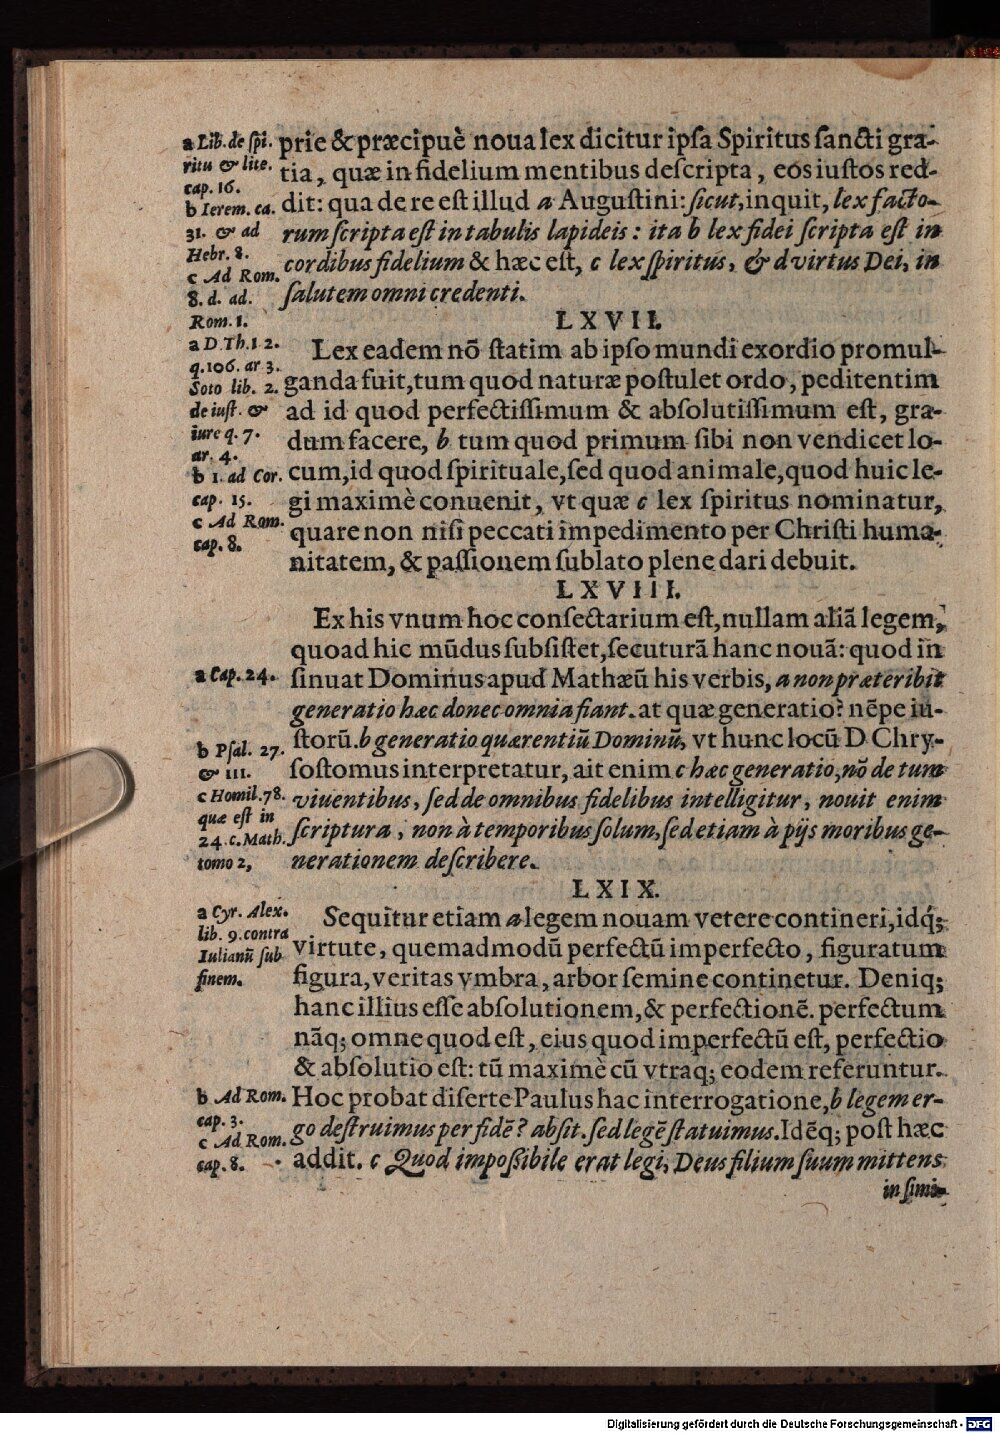 a Lib. de ſpi.
ritu & lite.
cap. 16.
b Ierem. ca.
31. & ad
Hebr. 8.
c Ad Rom.
8. d. ad.
Rom. 1.
prie & præcipuè noua lex dicitur ipſa Spiritus ſancti gra-
tia, quæ in fidelium mentibus deſcripta, eos iuſtos red-
dit: qua de re eſt illud a Auguſtini: ſicut, inquit, lex facto-
rum ſcripta eſt in tabulis lapideis: ita b lex fidei ſcripta eſt in
cordibus fidelium & hæc eſt, c lex ſpiritus, & d virtus Dei, in
ſalutem omni credenti.
LXVII.
a D. Th. 1 2.
q. 106. ar 3.
Soto lib. 2.
de iuſt. &
iure q. 7.
ar. 4.
b 1. ad Cor.
cap. 15.
c Ad Rom.
cap. 8.
Lex eadem nõ ſtatim ab ipſo mundi exordio promul-
ganda fuit, tum quod naturæ poſtulet ordo, peditentim
ad id quod perfectiſſimum & abſolutiſſimum eſt, gra-
dum facere, b tum quod primum ſibi non vendicet lo-
cum, id quod ſpirituale, ſed quod animale, quod huic le-
gi maximè conuenit, vt quæ c lex ſpiritus nominatur,
quare non niſi peccati impedimento per Chriſti huma-
nitatem, & paſſionem ſublato plene dari debuit.
LXVIII.
Ex his vnum hoc conſectarium eſt, nullam aliã legem,
quoad hic mũdus ſubſiſtet, ſecuturã hanc nouã: quod in
a Cap. 24.
ſinuat Dominus apud Mathæũ his verbis, a non præteribit
generatio hæc donec omnia fiant. at quæ generatio? nẽpe iu-
b Pſal. 27.
& 111.
c Homil. 78.
quæ eſt in
24. c. Math.
tomo 2,
ſtorũ. b generatio quærentiũ Dominũ, vt hunc locũ D Chry-
ſoſtomus interpretatur, ait enim c hæc generatio, nõ de tum
viuentibus, ſed de omnibus fidelibus intelligitur, nouit enim
ſcriptura, non à temporibus ſolum, ſed etiam à pijs moribus ge-
nerationem deſcribere.
LXIX.
a Cyr. Alex.
lib. 9. contra
Iulianũ ſub
finem.
Sequitur etiam a legem nouam vetere contineri, idq́;
virtute, quemadmodũ perfectũ imperfecto, figuratum
figura, veritas vmbra, arbor ſemine continetur. Deniq;
hanc illius eſſe abſolutionem, & perfectionẽ. perfectum
nãq; omne quod eſt, eius quod imperfectũ eſt, perfectio
& abſolutio eſt: tũ maximè cũ vtraq; eodem referuntur.
b Ad Rom.
cap. 3.
c Ad Rom.
cap. 8.
Hoc probat diſerte Paulus hac interrogatione, b legem er-
go deſtruimus per fidẽ? abſit. ſed legẽ ſtatuimus. Idẽq; poſt hæc
addit. c Quod impoſſibile erat legi, Deus filium ſuum mittens
in ſimi-
Digitalisierung gefördert durch die Deutsche Forschungsgemeinschaft - DFG